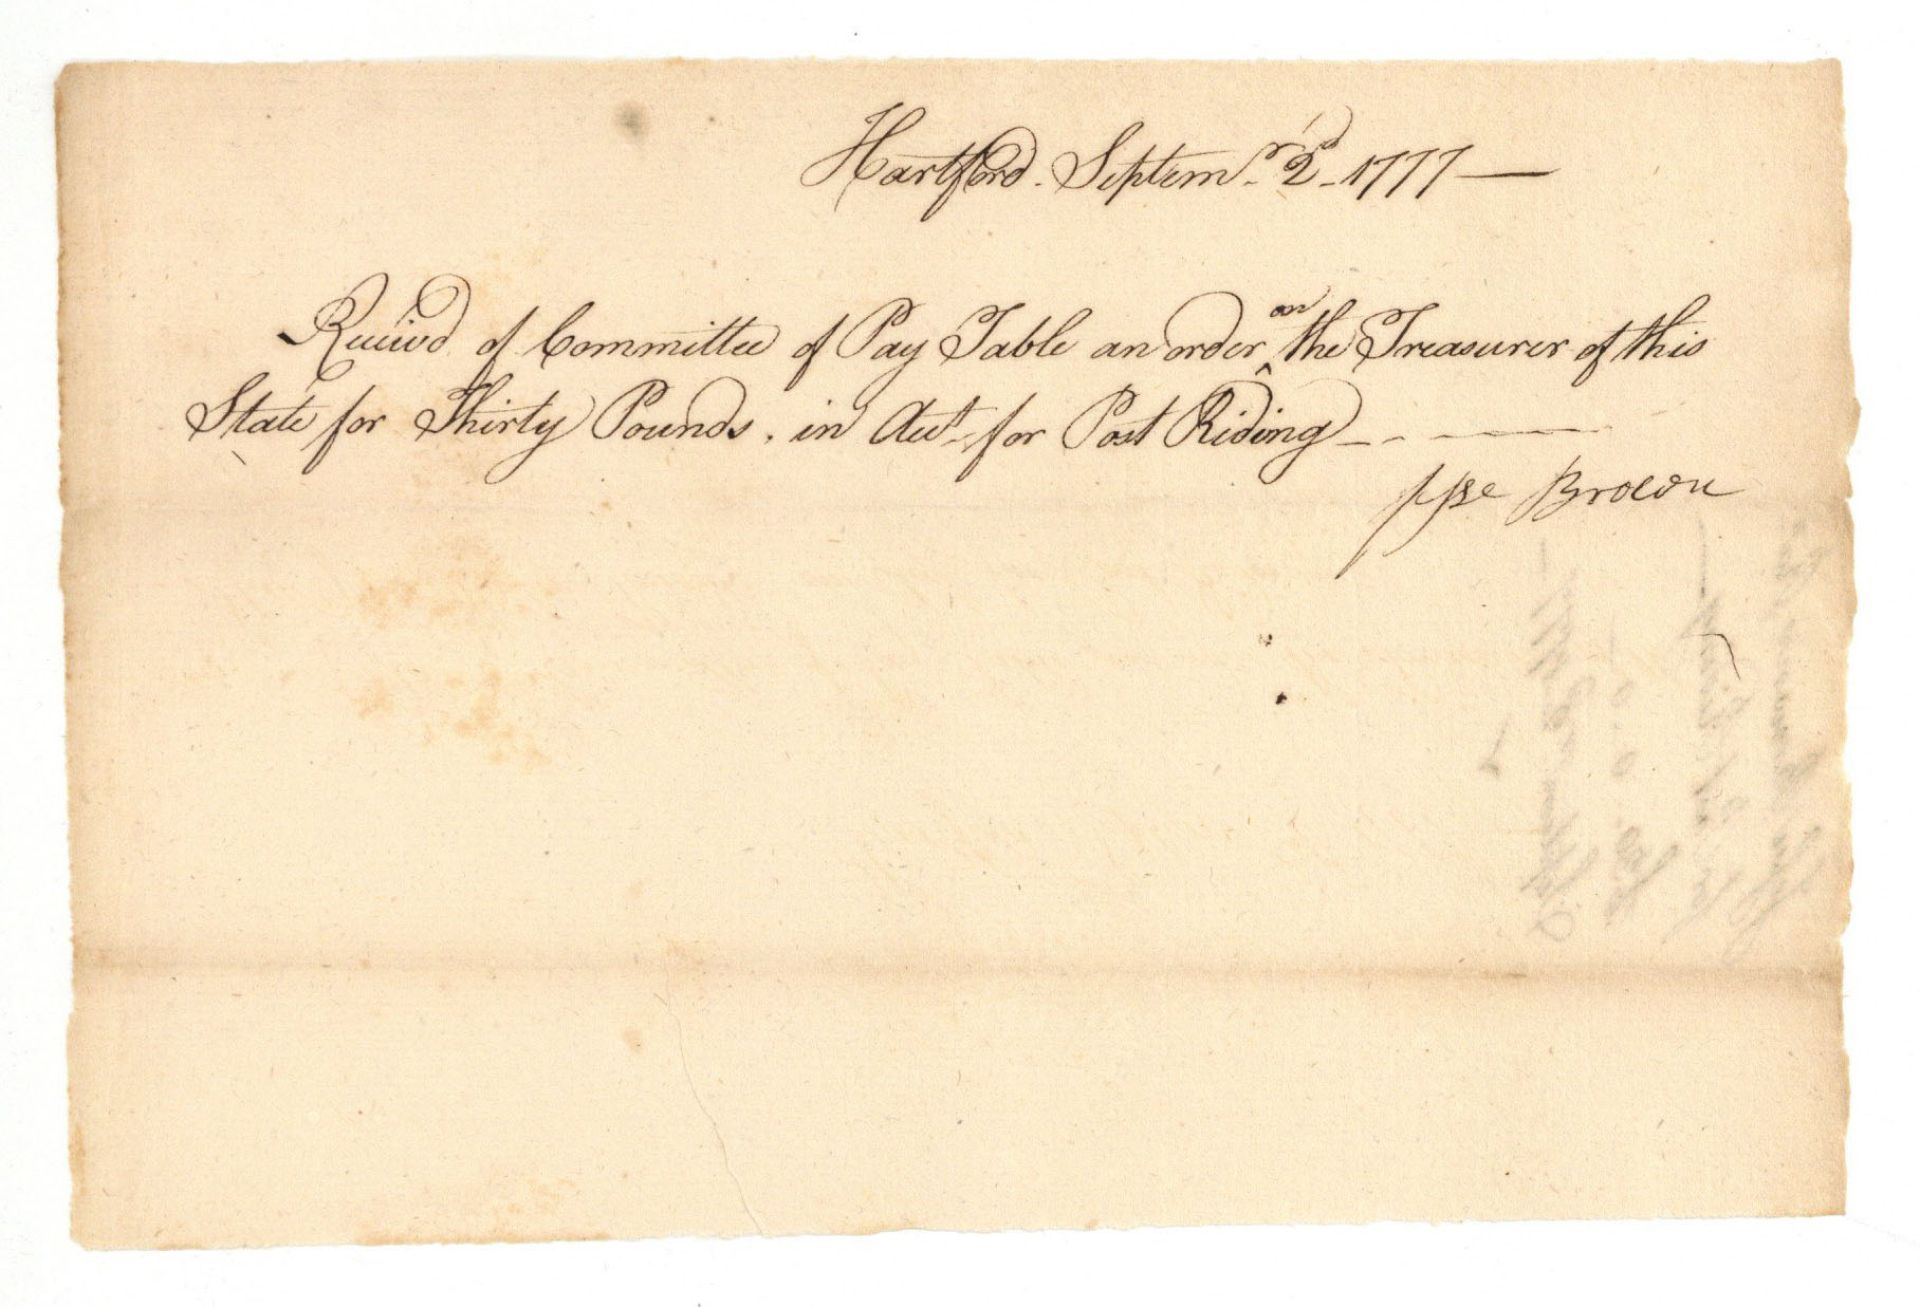 Hartford. Septemr. 2d. 1777 —
Receivd of Committee of Pay Table an order on the Treasurer of this
State for Thirty Pounds. in Acct. for Post Riding — - - ——
Jesse Brown